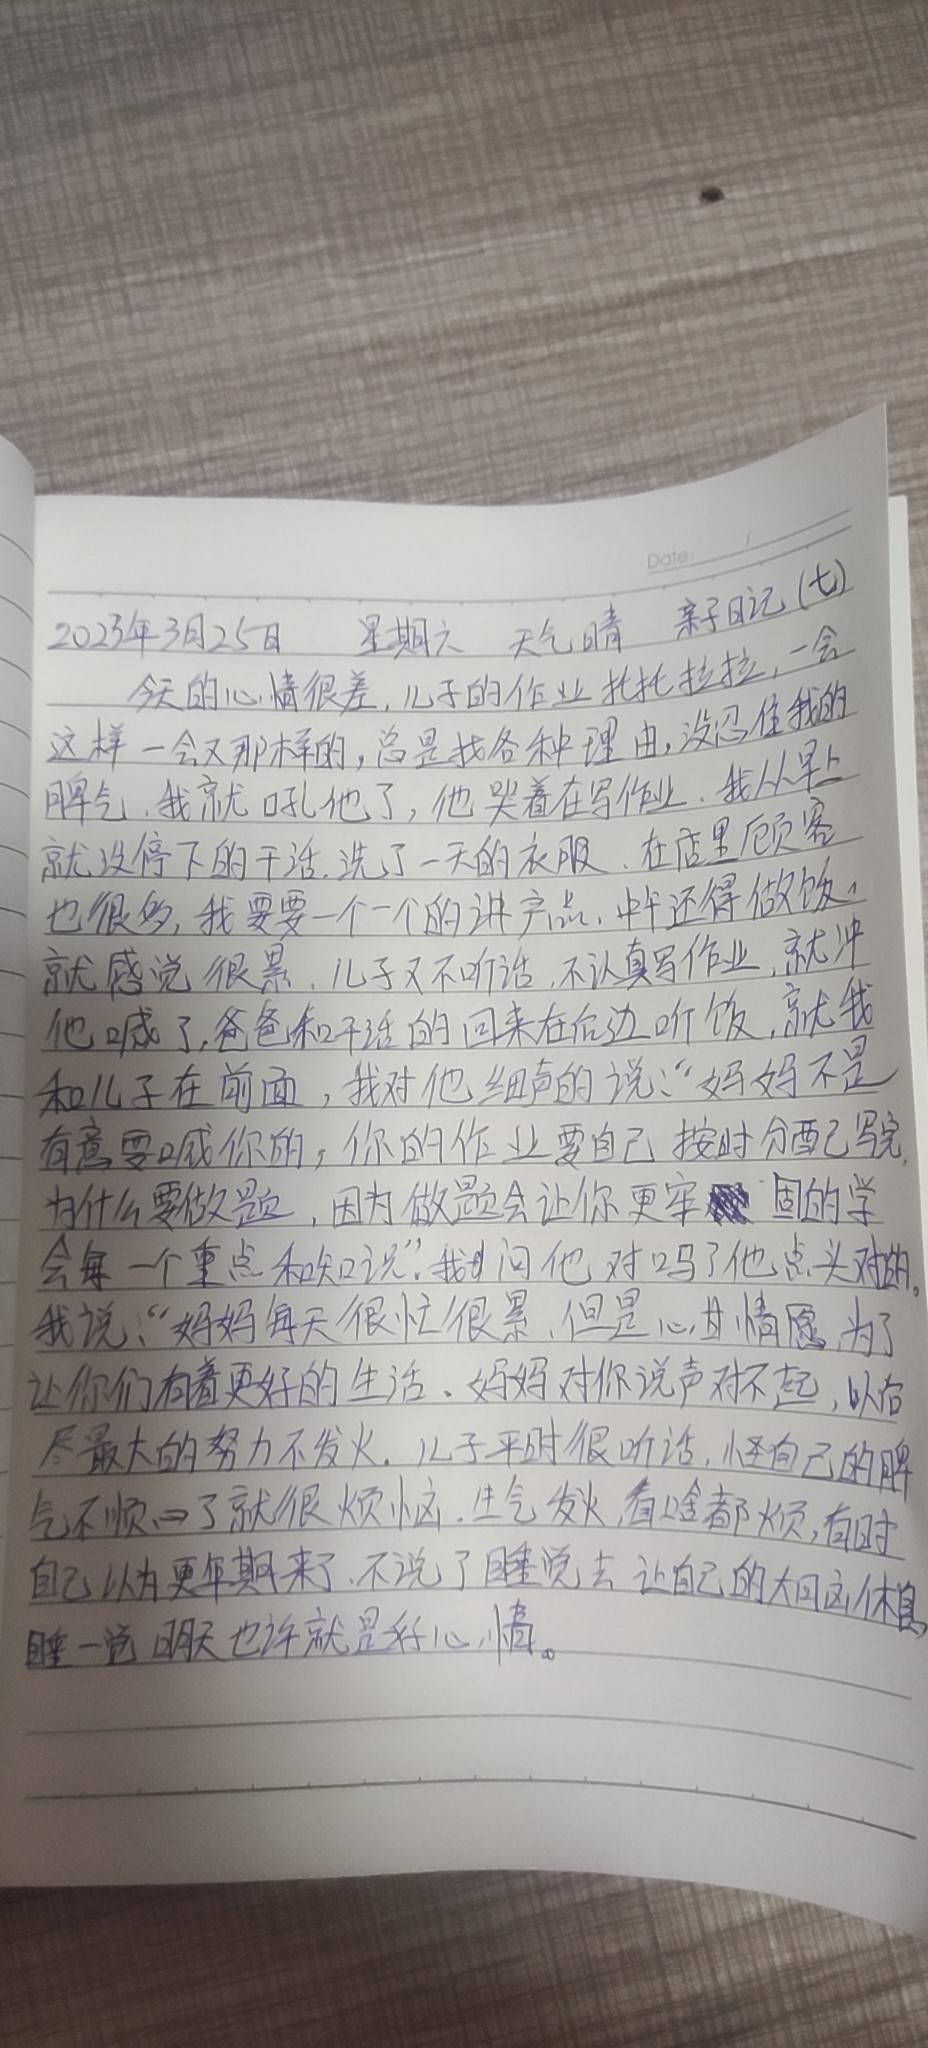 Date: /
2023年3月25日 星期六 天气晴 亲子日记(七)
今天的心情很差,儿子的作业托托拉拉,一会
这样一会又那样的,总是找各种理由,没忍住我的
脾气.我就吼他了,他哭着在写作业.我从早上
就没停下的干活.洗了一天的衣服.在店里顾客
也很多,我要要一个一个的讲产品.中午还得做饭、
就感觉很累.儿子又不听话,不认真写作业,就冲
他喊了,爸爸和干活的回来在后边吃饭,就我
和儿子在前面,我对他细声的说:“妈妈不是
有意要喊你的,你的作业要自己按时分配己写完,
为什么要做题,因为做题会让你更牢固的学
会每一个重点和知识”.我问他对吗了他点头对的。
我说:“妈妈每天很忙很累.但是心甘情愿.为了
让你们有着更好的生活、妈妈对你说声对不起,以后
尽最大的努力不发火.儿子平时很听话.怪自己的脾
气不顺心了就很烦恼.生气发火,看啥都烦,有时
自己以为更年期来了.不说了睡觉去让自己的大脑休息,
睡一觉明天也许就是好心情。